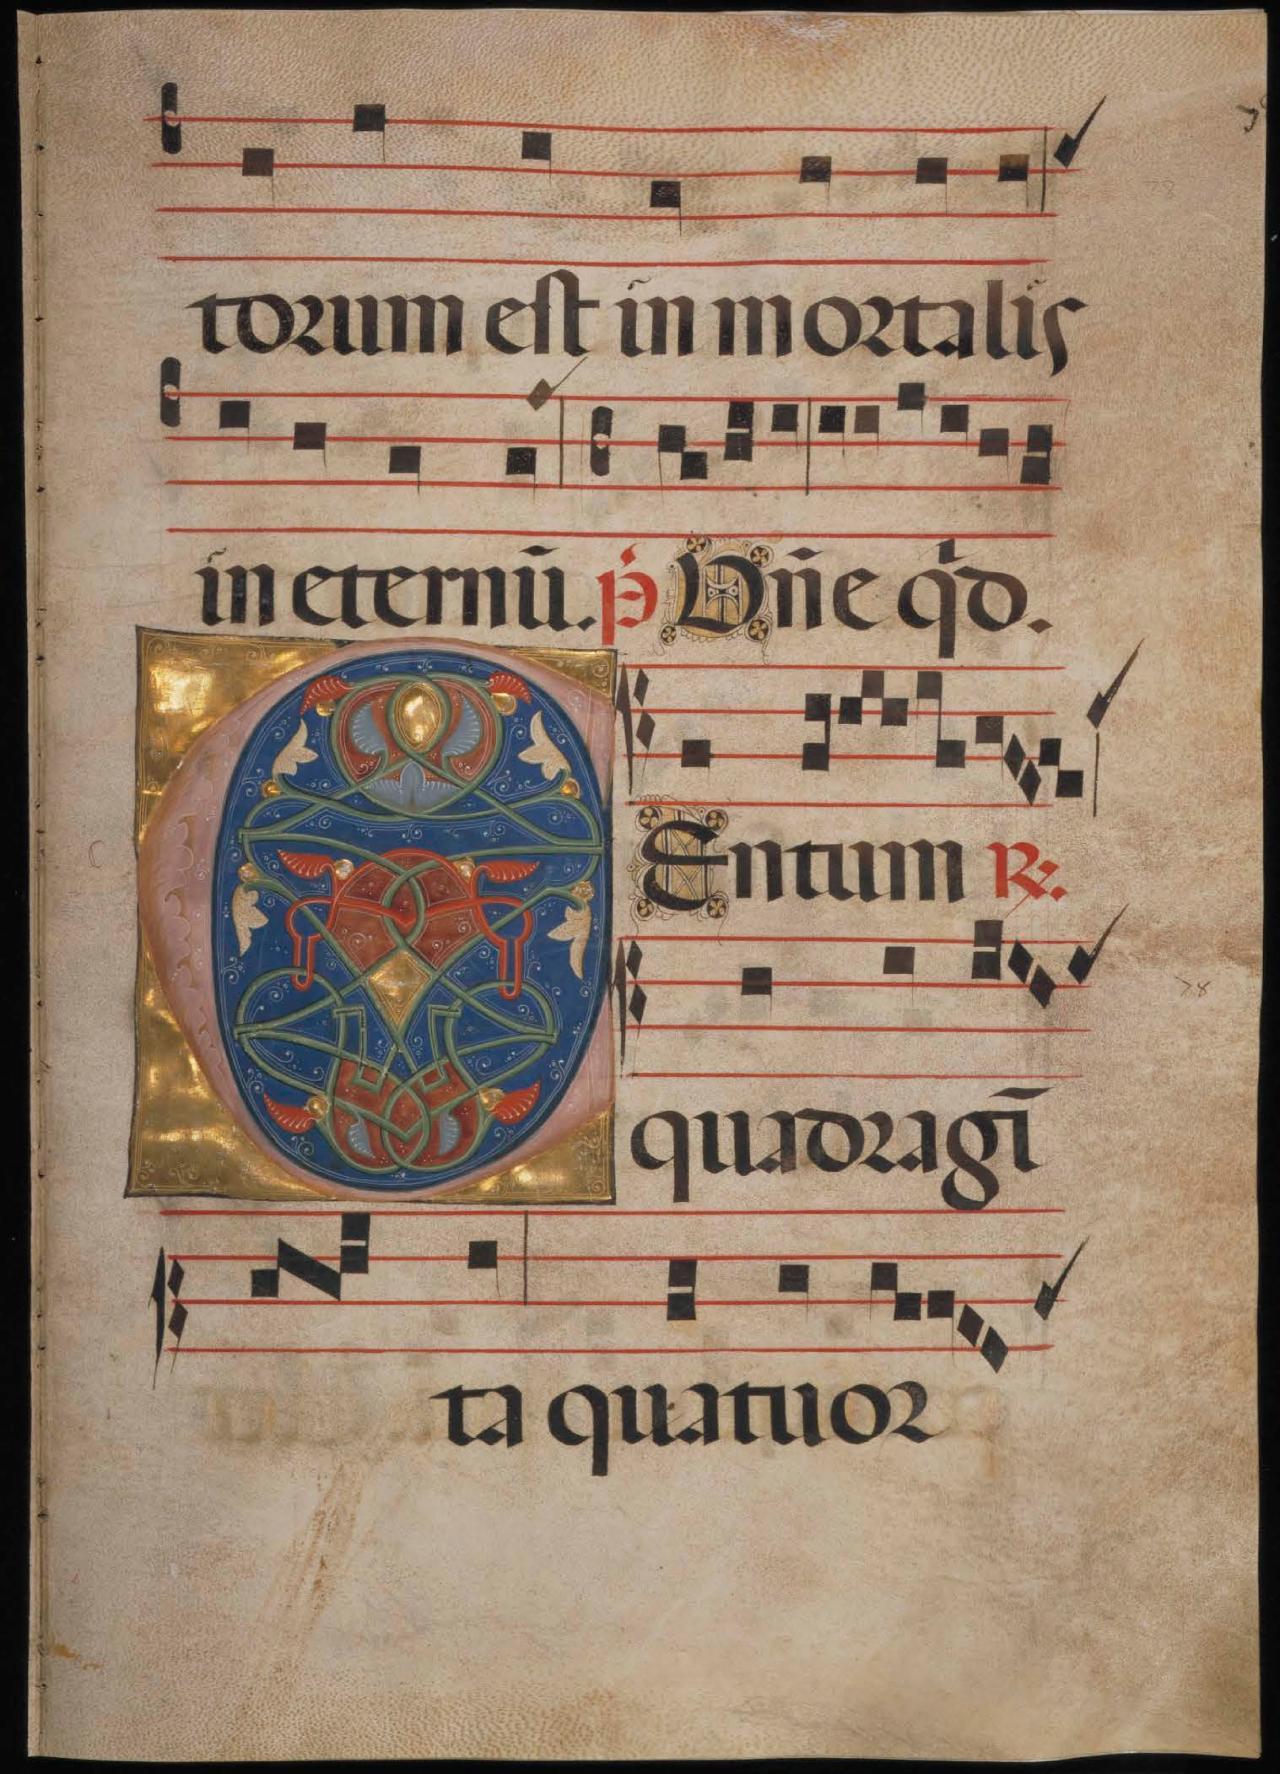 torum est in mortalis
in eternū. p̄s Dn̄e qͥd.
C Entum ℟.
quadragī
ta quatuor
78